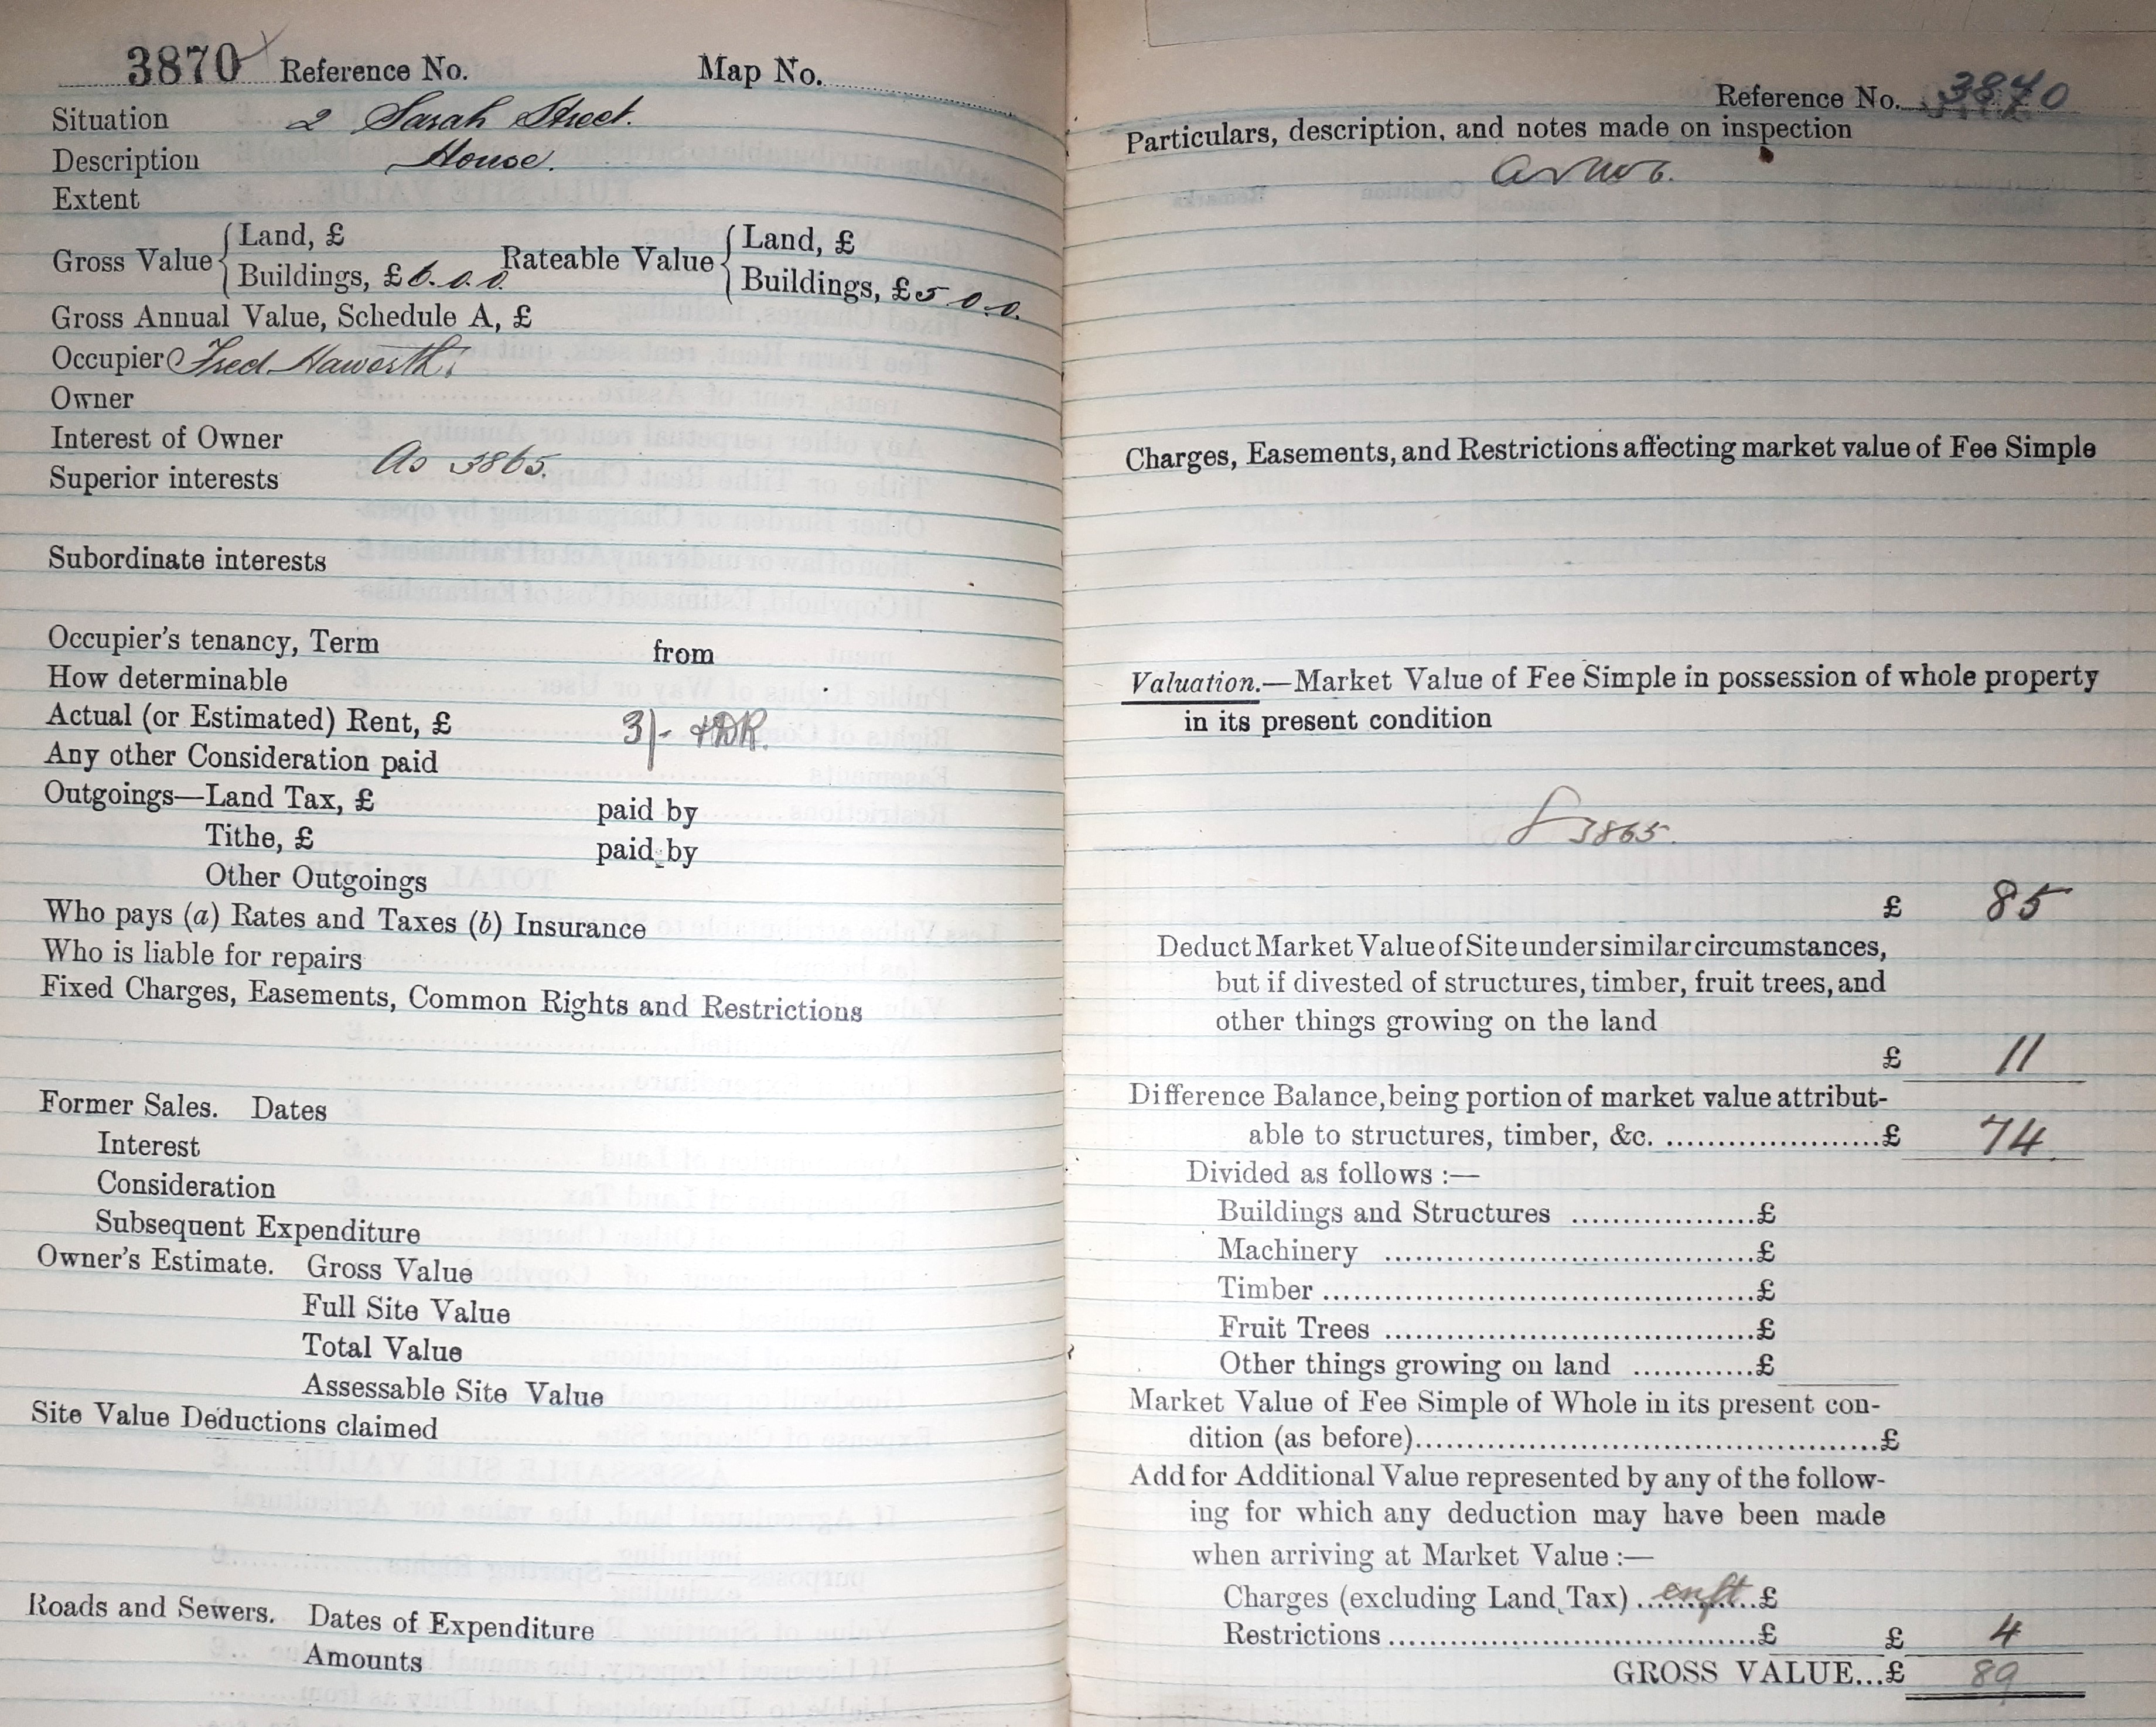 3870 Reference No. Map No.
Situation 2 Sarah Street.
Description House.
Extent
Gross Value { Land, £
Buildings, £ 6.0.0. Rateable Value { Land, £
Buildings, £ 5 0.0.
Gross Annual Value, Schedule A, £
Occupier Fred Haworth
Owner
Interest of Owner
As 3865.
Superior interests
Subordinate interests
Occupier's tenancy, Term from
How determinable
Actual (or Estimated) Rent, £ 3/-
Any other Consideration paid
Outgoings—Land Tax, £ paid by
Tithe, £ paid by
Other Outgoings
Who pays (a) Rates and Taxes (b) Insurance
Who is liable for repairs
Fixed Charges, Easements, Common Rights and Restrictions
Former Sales. Dates
Interest
Consideration
Subsequent Expenditure
Owner's Estimate. Gross Value
Full Site Value
Total Value
Assessable Site Value
Site Value Deductions claimed
Roads and Sewers. Dates of Expenditure
Amounts
Reference No.
Particulars, description, and notes made on inspection
Charges, Easements, and Restrictions affecting market value of Fee Simple
Valuation.—Market Value of Fee Simple in possession of whole property
in its present condition
3865.
£ 85
Deduct Market Value of Site under similar circumstances,
but if divested of structures, timber, fruit trees, and
other things growing on the land
£ 11
Difference Balance, being portion of market value attribut-
able to structures, timber, &c. ....................£ 74
Divided as follows :—
Buildings and Structures ..................£
Machinery ....................................£
Timber ..........................................£
Fruit Trees ....................................£
Other things growing on land ............£
Market Value of Fee Simple of Whole in its present con-
dition (as before)..............................................£
Add for Additional Value represented by any of the follow-
ing for which any deduction may have been made
when arriving at Market Value :—
Charges (excluding Land Tax) ....enft....£
Restrictions ....................................£ £ 4
GROSS VALUE...£ 89